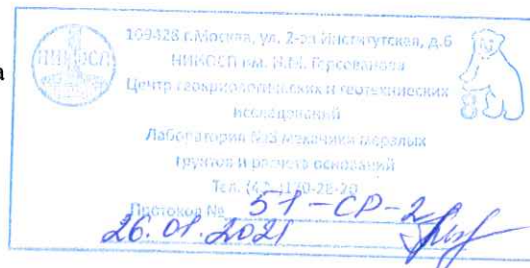 а
109428 г.Москва, ул. 2-ая Институтская, д.6
НИИОСП
НИИОСП им. Н.М. Герсеванова
Центр геокриологических и геотехнических
исследований
Лаборатория №8 механики мерзлых
грунтов и расчета оснований
8
Протокол № 51-СР-2
26.01.2021